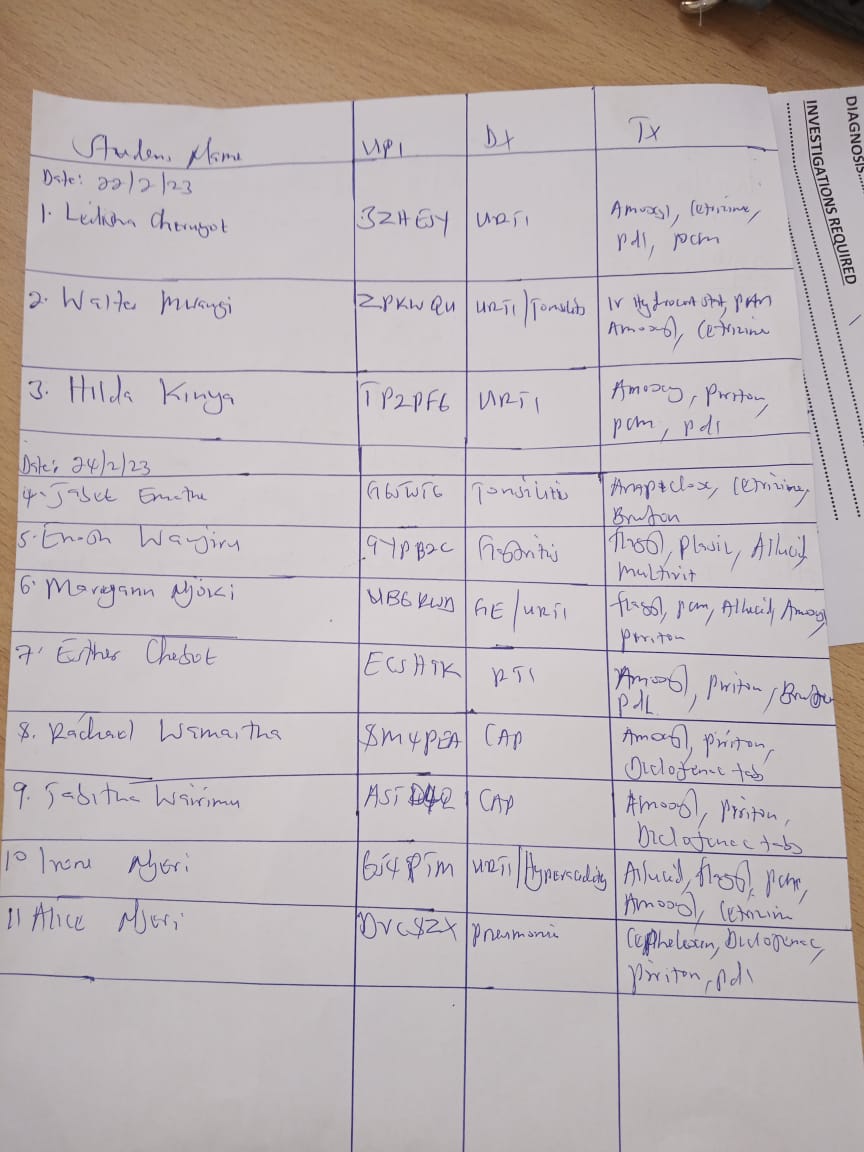 Student Name UPI DX Tx
Date: 22/2/23
1. Cherugot 3ZHESY URTI Amoxyl, Cetrizine,
pdl, pcm
2. Walter Mwangi ZPKWQU URTI/Tonsilitis IV Hydrocort stat, pcm
Amoxyl, Cetrizine
3. Hilda Kinya TP2PF6 URTI Amoxy, Piriton,
pcm, pdl
Date: 24/2/23
4. Tonsilitis Ampiclox, Cetrizine,
Brufen
5. Wanjiru 9YPB2C Flagyl, Plasil, Allucid
multivit
6. Maryann Njoki GE/URTI flagyl, pcm, Allucid, Amoxyl
piriton
7. Esther Chebet RTI Amoxyl, piriton, Brufen
pdl
8. Rachael Wamaitha 8M4PEA CAP Amoxyl, piriton,
Diclofenac tab
9. Tabitha Wairimu CAP Amoxyl, piriton,
Diclofenac tabs
10 Irene Njeri URTI/Hyperacidity Allucid, flagyl, pcm,
Amoxyl, Cetrizin
11 Alice Njeri DVC8ZX Pneumonia Cephelexin, Diclofenac,
piriton, pdl
DIAGNOSIS
INVESTIGATIONS REQUIRED